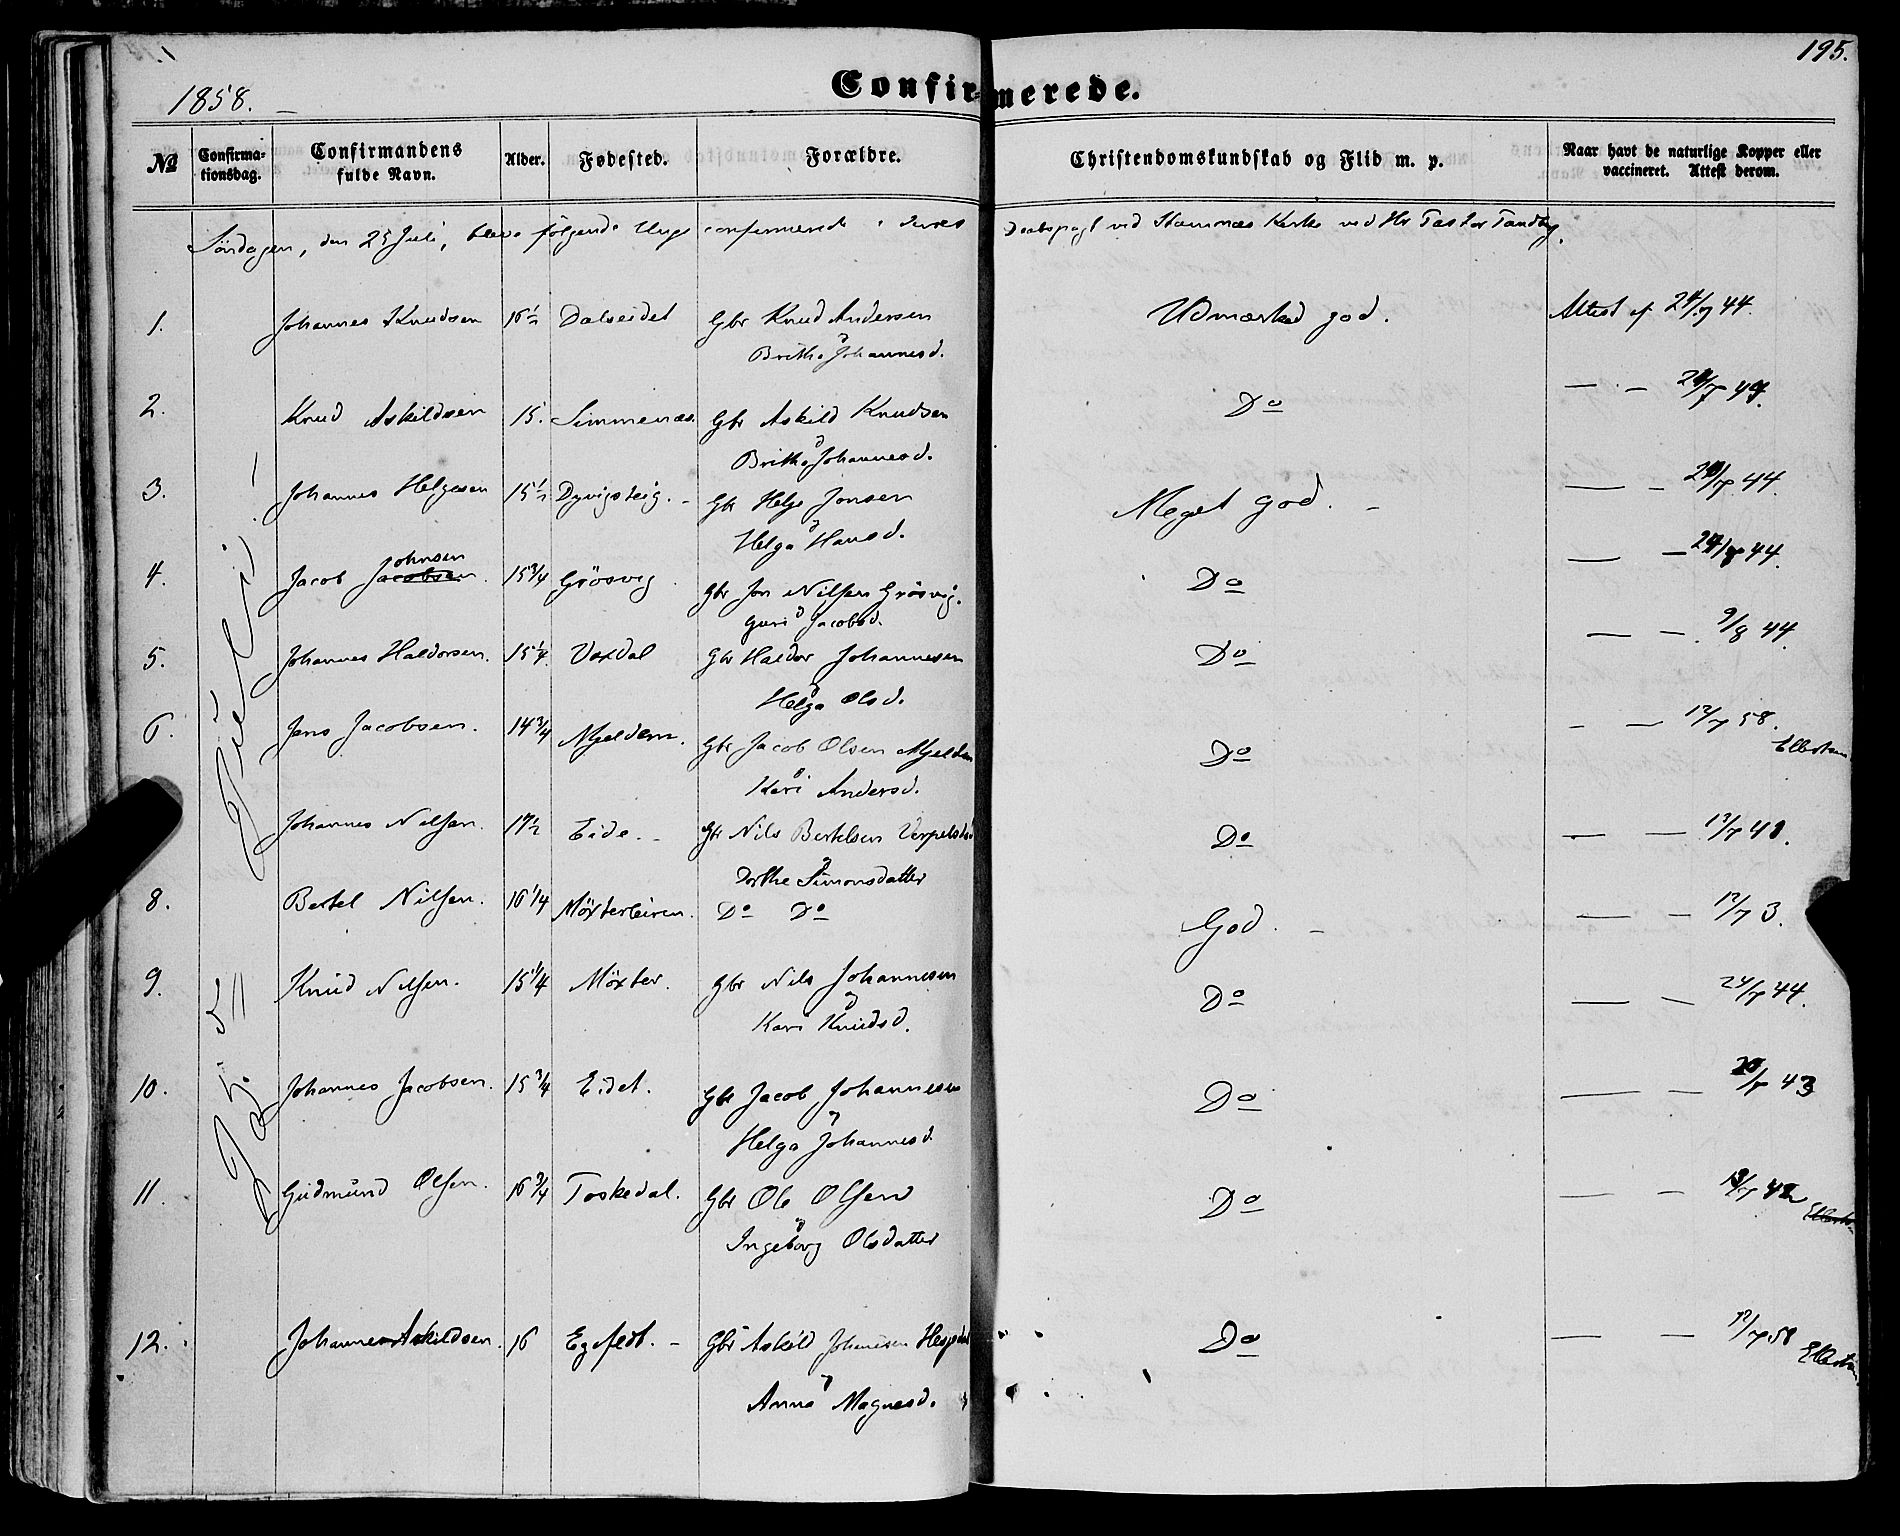 195.
1858. Confirmerede.
No Confirmationsdag. Confirmandens fulde Navn. Alder. Fødested. Forældre. Christendomskundskab og Flid m. p. Naar havt de naturlige Kopper eller vaccineret. Attest derom.
Söndagen, den 25 Juli, bleve følgende Unge confirmerede i deres Daabspagt ved Stamnæs Kirke ved Hr Pastor Tandbg.
1. Johannes Knudsen 16½ Dalseidet Gbr Knud Andersen Udmærked god. Attest af 24/7 44.
Britha Johannesd.
2. Knud Askildsen 15. Simmenæs. Gbr Askild Knudsen Do — —
Britha Johannesd.
3. Johannes Helgesen 15½ Dyvigsteig. - Gbr Helge Jonsen Meget god. - — — 44.
Helga Hansd.
4. Jacob Johnsen 15¾ Grösvig. Gbr Jon Nilsen Grösvig. Do — — 44.
Guri Jacobsd.
5. Johannes Haldorsen. 15¼ Vaxdal Gbr Haldor Johannesen Do — — 9/8 44.
Helga Olsd.
6. Jens Jacobsen. 14¾ Mjeldem. Gbr Jacob Olsen Mjelde Do — — 12/7 58.
Kari Andersd.
Johannes Nilsen. 17½ Eide. - Gbr Nils Bertelsen Do — —
Dorthe Simonsdatter
8. Bertel Nilsen. 16¼ Do Do God. - — — 12/7 3.
9. Knud Nilsen. 15¼ Möxter. Gbr Nils Johannesen Do — — 24/7 44.
Kari Knudsd.
10. Johannes Jacobsen. 15¾ Eidet. Gbr Jacob Johannesen Do — — 43
Helga Johannesd.
11. Gudmund Olsen. 16¾ Toskedal. Gbr Ole Olsen Do — —
Ingeborg Olsdatter
12. Johannes Askildsen. 16 Gbr Askild Johannesen Do — — 12/7 58
Anna Magnesd.
25. Juli